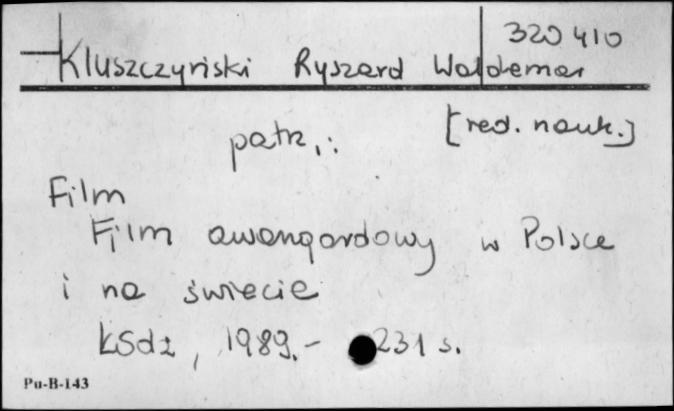 320410
Kluszczyński Ryszard Waldemar
[red. nauk.]
patrz.:
Film
Film awangardowy w Polsce
i na świecie
Łódź, 1989.- 231 s.
Pu-B-143